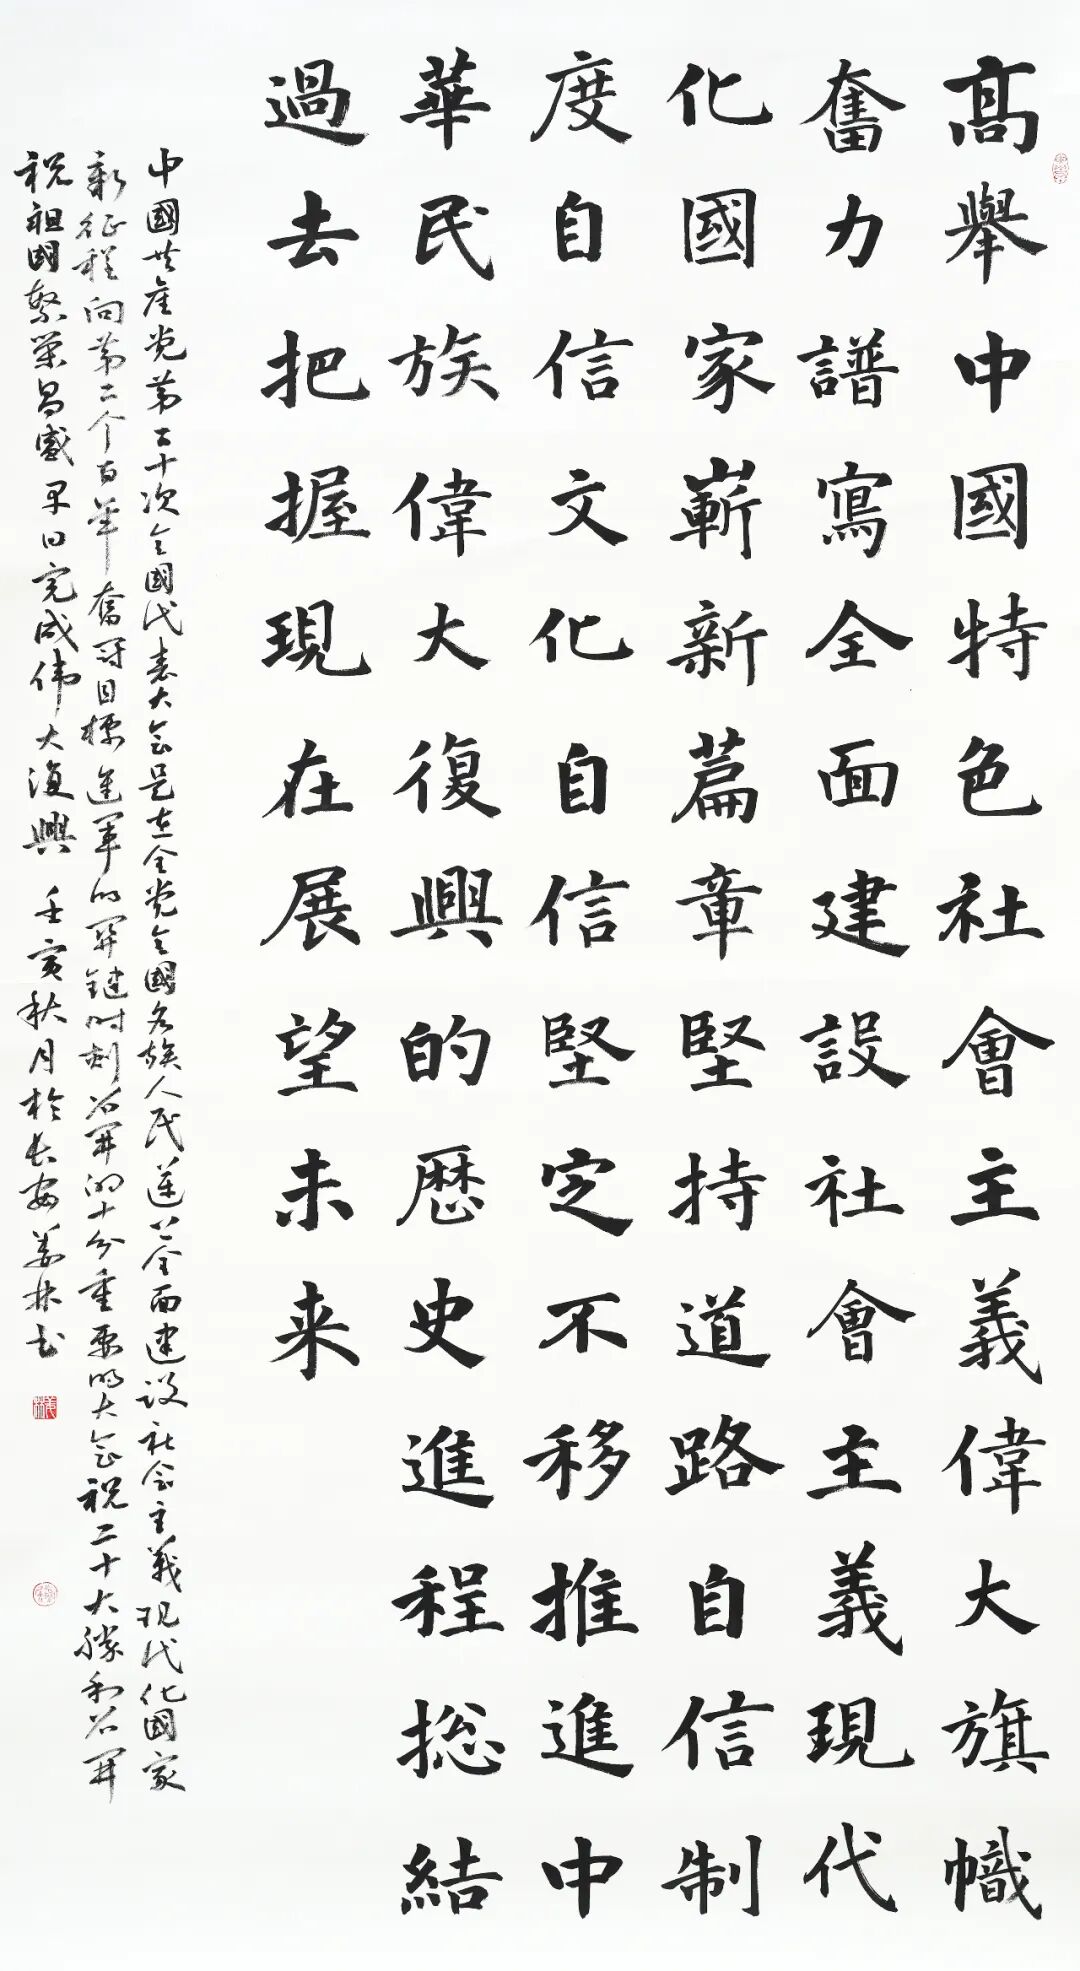 髙舉中國特色社會主義偉大旗幟
奮力譜寫全面建設社會主義現代
化國家嶄新篇章堅持道路自信制
度自信文化自信堅定不移推進中
華民族偉大復興的歷史進程捴結
過去把握現在展望未来
中國共產党第二十次全國代表大会是在全党全國各族人民邁上全面建设社会主義现代化國家
新征程向第二个百年奮鬥目標進軍的関鍵时刻召開的十分重要的大会祝二十大勝利召開
祝祖國繁榮昌盛早日完成伟大復興 壬寅秋月於長安姜林书